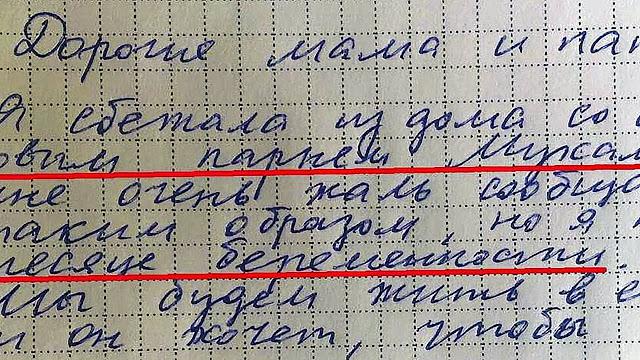 Дорогие мама и пап
Я сбежала из дома со с
овым парнем Муса
мне очень жаль сообща
таким образом, но я н
месяце беременности.
Мы будем жить в е
и он хочет, чтобы